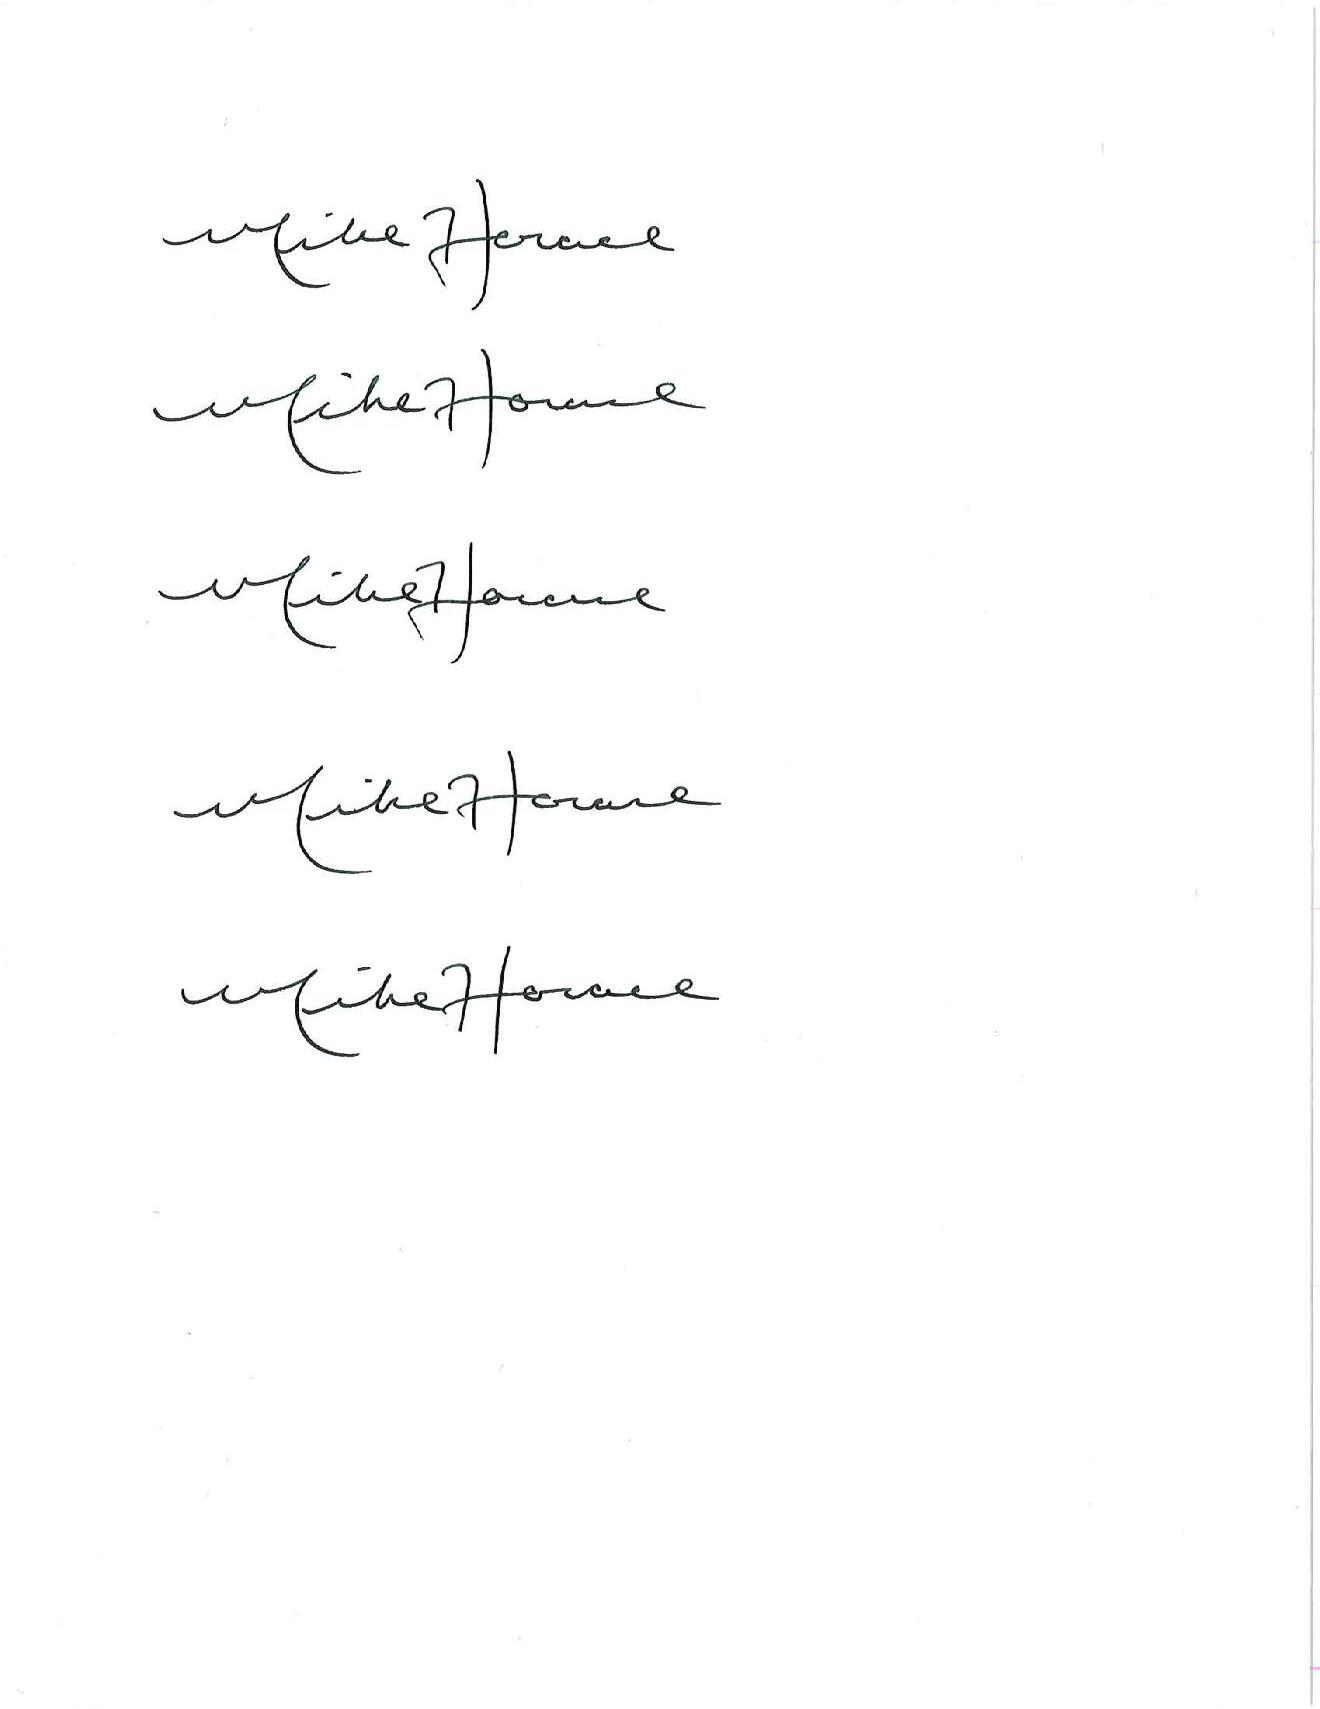 Mike Horace
Mike Horace
Mike Horace
Mike Horace
Mike Horace